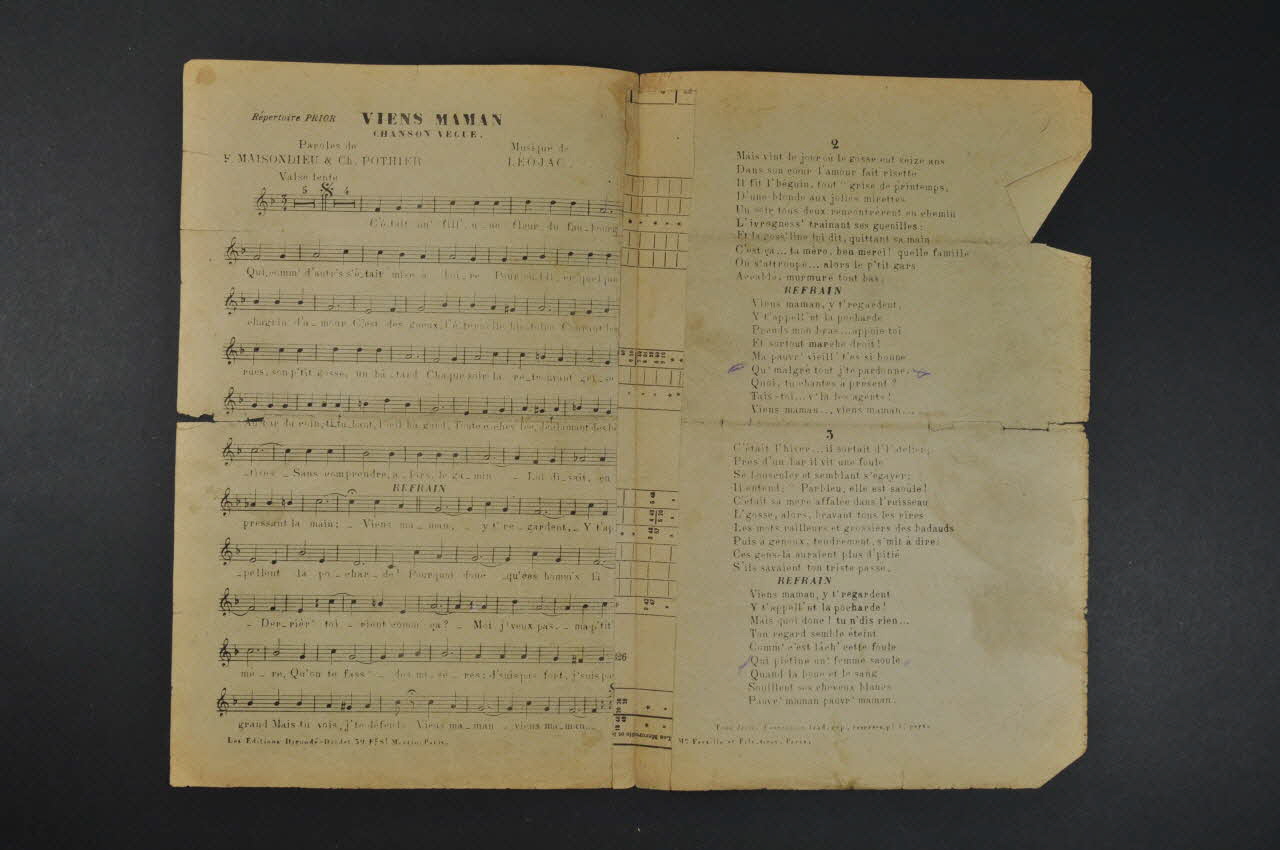 Répertoire PRIOR
VIENS MAMAN
CHANSON VECUE.
Paroles de
F. MAISONDIEU & Ch. POTHIER
Musique de
LEOJAC
Valse lente
5 4
C'é_tait un' fill', u_ne fleur du fau_bourg
Qui, comm' d'autr's s'é_tait mise à boi_re Pour oubli_er quelque
chagrin d'a_mour C'est des gueux, l'é_ternelle his_toire Courant les
rues, son p'tit gosse, un bâ_tard Chaque soir la re_trouvant gri_se
Au bar du coin, titu_bant, l'œil hagard, Toute
_tises _ Sans comprendre, a_lors, le ga_min _ Lui di_sait, en
REFRAIN
pressant la main; _ Viens ma_man, _ y t're_gardent, _ Y t'ap
_pellent la po_char_de! Pourquoi donc _ qu'ces homm's là
_ Der_rièr' toi _ rient comm' ça? _ Moi j'veux pas _ ma p'tit'
mè_re, Qu'on te fass' _ des mi_sè_res; J'suis pas fort, j'suis pas
grand Mais tu vois, j'te défends Viens ma_man _ viens ma_man...
Les Editions Digoudé-Diodet, 39, Fg St Martin, Paris.
26
2
Mais vint le jour où le gosse eut seize ans
Dans son cœur l'amour fait risette
Il fit l'béguin, tout' grisé de printemps,
D'une blonde aux jolies mirettes
Un soir tous deux rencontrèrent en chemin
L'ivrogness' trainant ses guenilles:
Et la goss'line lui dit, quittant sa main
C'est ça... ta mère, ben merci! quelle famille
On s'attroupe... alors le p'tit gars
Accablé, murmure tout bas:
REFRAIN
Viens maman, y t'regardent,
Y t'appell'nt la pocharde
Prends mon bras... appuie toi
Et surtout marche droit!
Ma pauvr' vieill' t'es si bonne
Qu' malgré tout j'te pardonne.
Quoi, tu chantes à présent?
Tais-toi... v'là les agents!
Viens maman... viens maman...
3
C'était l'hiver... il sortait d'l'atelier;
Près d'un bar il vit une foule
Se bousculer et semblant s'égayer;
Il entend: " Parbleu, elle est saoûle!
C'était sa mère affalée dans l'ruisseau
L'gosse, alors, bravant tous les rires
Les mots railleurs et grossiers des badauds
Puis à genoux, tendrement, s'mit à dire:
Ces gens-là auraient plus d'pitié
S'ils savaient ton triste passé.
REFRAIN
Viens maman, y t'regardent
Y t'appell'nt la pocharde!
Mais quoi donc! tu n'dis rien...
Ton regard semble éteint
Comm' c'est lâch' cette foule
Qui piétine un' femme saoule
Quand la boue et le sang
Souillent ses cheveux blancs
Pauvr' maman pauvr' maman.